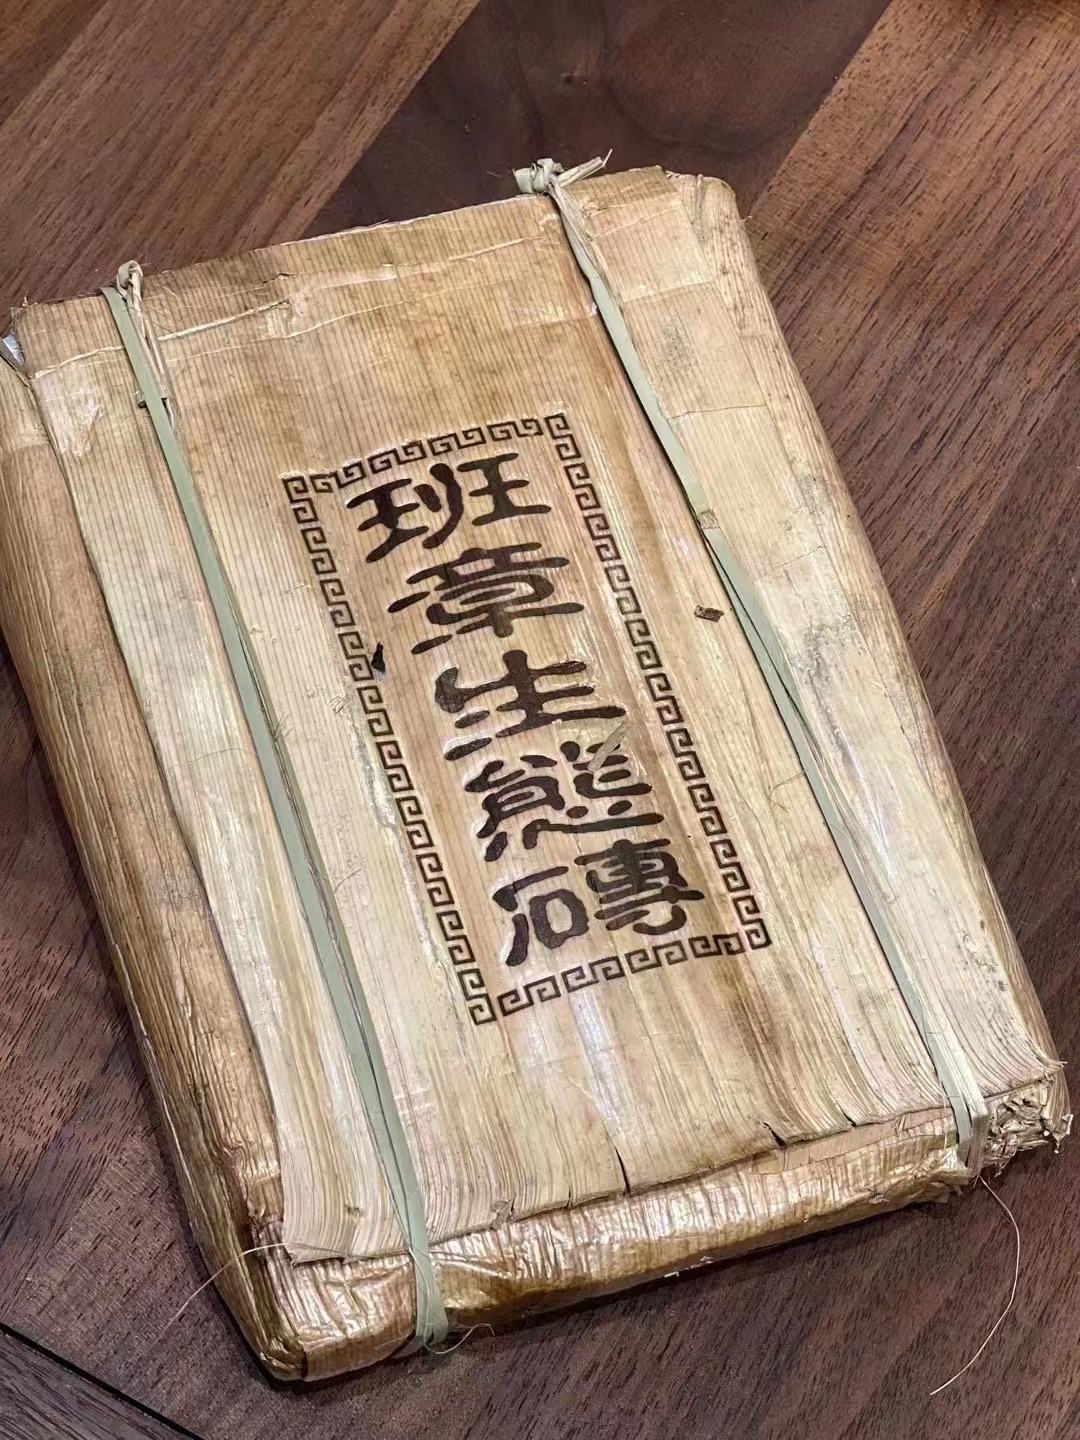 班章生態磚